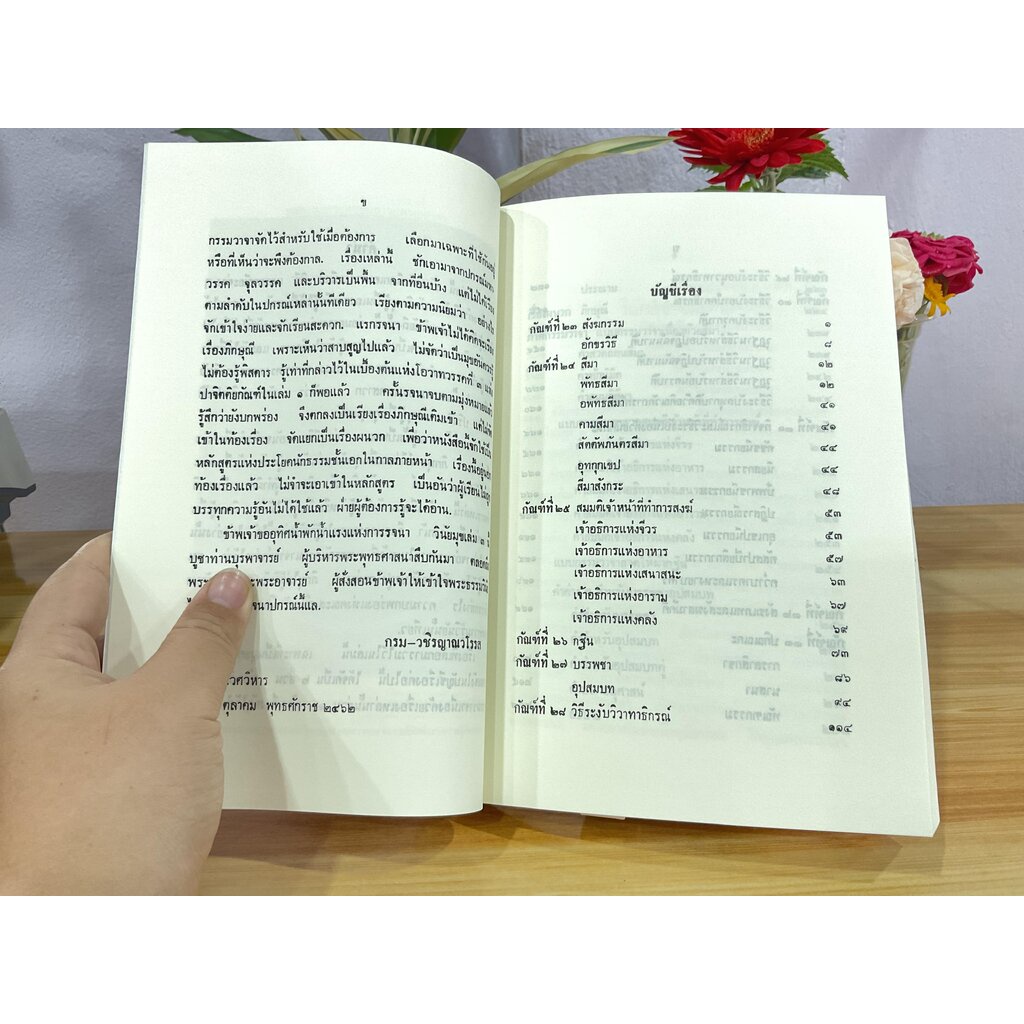 ข
กรรมวาจาจัดไว้สำหรับใช้เมื่อต้องการ เลือกมาเฉพาะที่ใช้กันอยู่
หรือที่เห็นว่าจะพึงต้องกาล. เรื่องเหล่านี้ ชักเอามาจากปกรณ์มหา
วรรค จุลวรรค และบริวารเป็นพื้น จากที่อื่นบ้าง แต่ไม่ได้เรียง
ตามลำดับในปกรณ์เหล่านั้นทีเดียว เรียงตามความนิยมว่า อย่างไร
จักเข้าใจง่ายและจักเรียนสะดวก. แรกรจนา ข้าพเจ้าไม่ได้คิดจะ
เรื่องภิกษุณี เพราะเห็นว่าสาบสูญไปแล้ว ไม่จัดว่าเป็นมุขอันควรรู้
ไม่ต้องรู้พิสดาร รู้เท่าที่กล่าวไว้ในเบื้องต้นแห่งโอวาทวรรคที่ ๓ แห่ง
ปาจิตติยกัณฑ์ในเล่ม ๑ ก็พอแล้ว ครั้นรจนาจบตามมุ่งหมายแล้ว
รู้สึกว่ายังบกพร่อง จึงตกลงเป็นเรียงเรื่องภิกษุณีเติมเข้า แต่ไม่จัด
เข้าในท้องเรื่อง จัดแยกเป็นเรื่องผนวก เพื่อว่าหนังสือนี้จักใช้เป็น
หลักสูตรแห่งประโยคนักธรรมชั้นเอกในกาลภายหน้า เรื่องนี้อยู่นอก
ท้องเรื่องแล้ว ไม่จำจะเอาเข้าในหลักสูตร เป็นอันว่าผู้เรียนไม่ถูก
บรรทุกความรู้อันไม่ได้ใช้แล้ว ฝ่ายผู้ต้องการรู้จะได้อ่าน.
ข้าพเจ้าขออุทิศน้ำพักน้ำแรงแห่งการรจนา วินัยมุขเล่ม ๓ นี้
บูชาท่านบุรพาจารย์ ผู้บริหารพระพุทธศาสนาสืบกันมา ตลอดถึง
พระ พระอาจารย์ ผู้สั่งสอนข้าพเจ้าให้เข้าใจพระธรรมวินัย
จนาปกรณ์นี้แล.
กรม–วชิรญาณวโรรส
วศวิหาร
ตุลาคม พุทธศักราช ๒๔๖๒
บัญชีเรื่อง
กัณฑ์ที่ ๒๓ สังฆกรรม ๑
อักขรวิธี ๘
กัณฑ์ที่ ๒๔ สีมา ๑๒
พัทธสีมา ๑๒
อพัทธสีมา ๔๑
คามสีมา ๔๑
สัตตัพภันตรสีมา ๔๔
อุทกุกเขป ๔๔
สีมาสังกระ ๔๘
กัณฑ์ที่ ๒๕ สมมติเจ้าหน้าที่ทำการสงฆ์ ๕๓
เจ้าอธิการแห่งจีวร ๕๓
เจ้าอธิการแห่งอาหาร ๕๗
เจ้าอธิการแห่งเสนาสนะ ๖๓
เจ้าอธิการแห่งอาราม ๖๗
เจ้าอธิการแห่งคลัง ๖๙
กัณฑ์ที่ ๒๖ กฐิน ๗๓
กัณฑ์ที่ ๒๗ บรรพชา ๘๖
อุปสมบท ๙๔
กัณฑ์ที่ ๒๘ วิธีระงับวิวาทาธิกรณ์ ๑๑๔